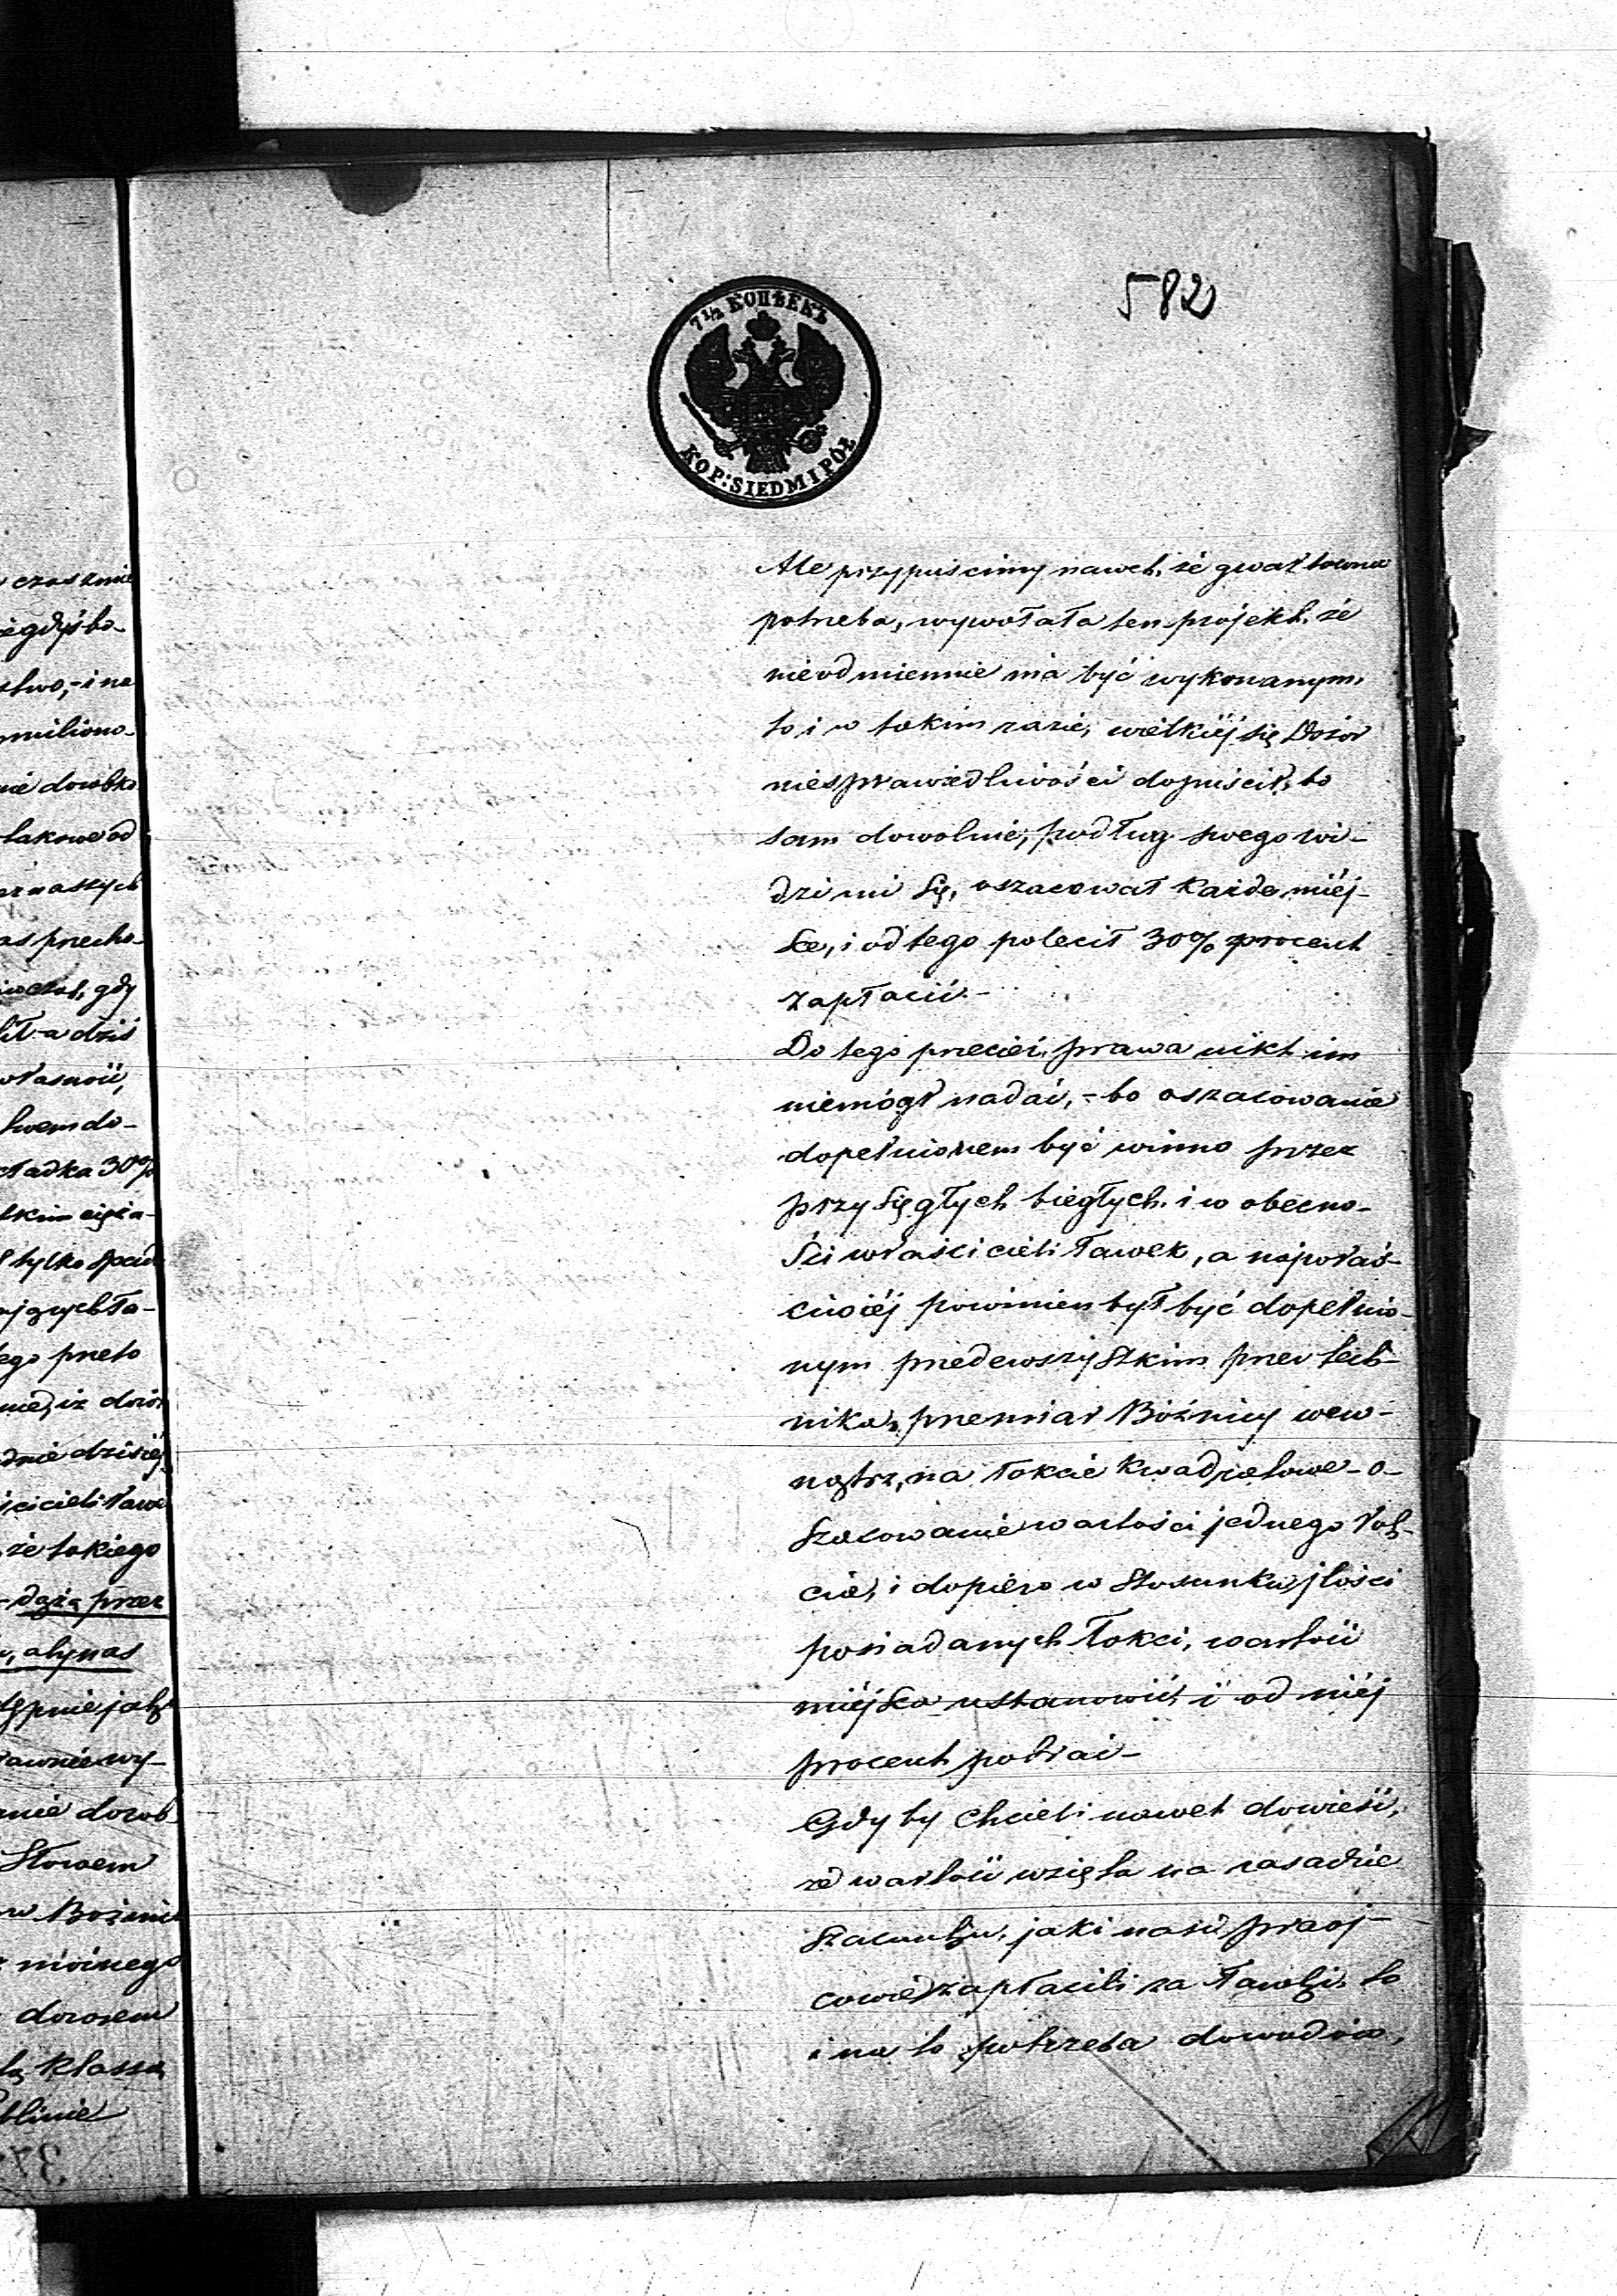 582
7½ КОПѢЕКЪ
KOP: SIEDM I PÓŁ
Ale przypuśćmy nawet, że gwałtowna
potrzeba, wywołała ten projekt, że
nieodmiennie ma być wykonanym,
to i w takim razie, wielkiéj się Dozór
niesprawiedliwości dopuścił, bo
sam dowolnie, podług swego wi-
dzi mi się, oszacował każde miéj-
sce, i od tego polecił 30% procent
zapłacić.-
Do tego przecież, prawa nikt im
niemógł nadać, - bo oszacowanie
dopełnionem być winno przez
przysięgłych biegłych i w obecno-
ści właścicieli ławek, a najwłaś-
ciwiéj powinien był być dopełnio-
nym przedewszystkim przez tech-
nika, przemiar Bóżnicy wew-
nątrz, na łokcie kwadratowe - o-
szacowanie wartości jednego łok-
cia, i dopiero w stosunku jlości
posiadanych łokci, wartość
miéjsca ustanowić i od niéj
procent pobrać -
Gdy by chcieli nawet dowieść,
że wartość wzięta na zasadzie
szacunku, jaki nasi praoj-
cowie zapłacili za ławki, to
i na to potrzeba dowodów,
czasznie
gdyś bo-
stwo,- i na
miliono-
nie dorobko
takowe od
naszych
as przecho-
wczas, gdy
a dziś
własność,
twem do-
kładka 30%
tylko spad
ących ła-
ego przeto
nie, iż dozór
dnie dzisiéj
ścicieli ław
że takiego
- dążą przez
, aby nas
pnie jak
awnie wy-
nie dorob-
Słowem
w Bożnic
możnego
dozorem
tą klassą
blinie